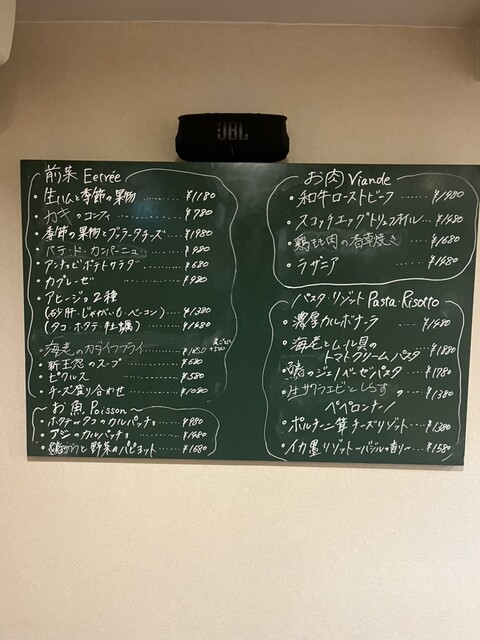 JBL
前菜 Entrée
・生ハムと季節の果物 ¥1180
・カキのコンフィ ¥780
・季節の果物とブッラータチーズ ¥1980
・パテ・ド・カンパーニュ ¥980
・アンチョビポテトサラダ ¥680
・カプレーゼ ¥980
・アヒージョ2種
(砂肝・じゃがいも・ベーコン) ¥1380
(タコ・ホタテ・牡蠣) ¥1680
・海老のカダイフフライ
・新玉ねぎのスープ ¥680
・ピクルス ¥580
・チーズ盛り合わせ ¥1080
お魚 Poisson
・ホタテとタコのカルパッチョ ¥980
・アジのカルパッチョ ¥1480
と野菜のパピヨット ¥1680
お肉 Viande
・和牛ローストビーフ ¥1980
・スコッチエッグトリュフオイル ¥1480
・鶏もも肉の香草焼き ¥1680
・ラザニア ¥1480
パスタ・リゾット Pasta・Risotto
・濃厚カルボナーラ ¥1480
・海老とムール貝の
トマトクリームパスタ ¥1880
のジェノベーゼパスタ ¥1780
・サクラエビとしらすの ¥1380
ペペロンチーノ
・ポルチーニ茸チーズリゾット ¥1380
・イカ墨リゾット〜バジルの香り〜 ¥1580